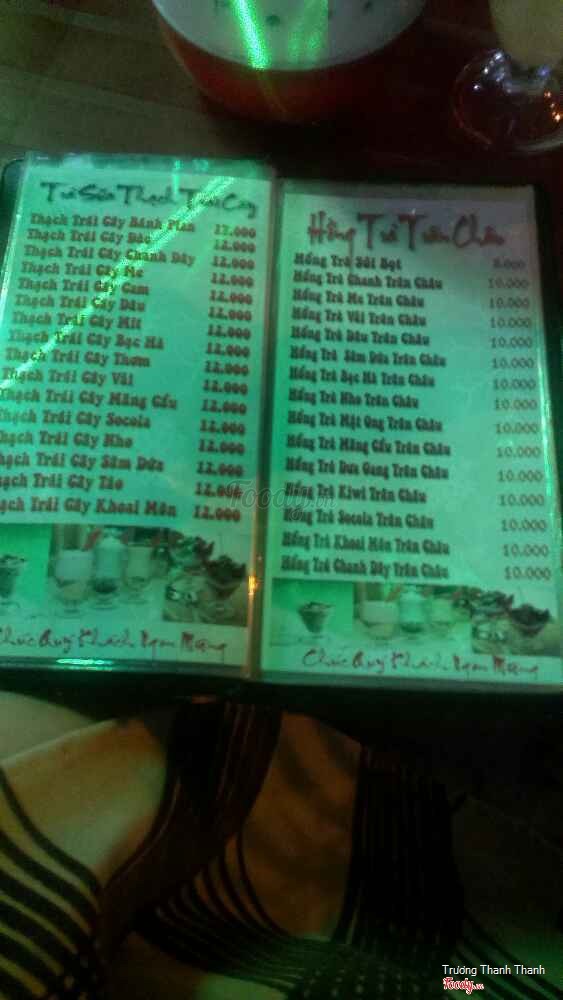 Trà Sữa Thạch Trái Cây
Thạch Trái Cây Bánh Plan 12.000
Thạch Trái Cây Đác 12.000
Thạch Trái Cây Chanh Dây 12.000
Thạch Trái Cây Me 12.000
Thạch Trái Cây Cam 12.000
Thạch Trái Cây Dâu 12.000
Thạch Trái Cây Mít 12.000
Thạch Trái Cây Bạc Hà 12.000
Thạch Trái Cây Thơm 12.000
Thạch Trái Cây Vải 12.000
Thạch Trái Cây Mãng Cầu 12.000
Thạch Trái Cây Socola 12.000
Thạch Trái Cây Nho 12.000
Thạch Trái Cây Sâm Dứa 12.000
Thạch Trái Cây Táo 12.000
Thạch Trái Cây Khoai Môn 12.000
Chúc Quý Khách Ngon Miệng
Hồng Trà Trân Châu
Hồng Trà Sủi Bọt 8.000
Hồng Trà Chanh Trân Châu 10.000
Hồng Trà Me Trân Châu 10.000
Hồng Trà Vải Trân Châu 10.000
Hồng Trà Dâu Trân Châu 10.000
Hồng Trà Sâm Dứa Trân Châu 10.000
Hồng Trà Bạc Hà Trân Châu 10.000
Hồng Trà Nho Trân Châu 10.000
Hồng Trà Mật Ong Trân Châu 10.000
Hồng Trà Mãng Cầu Trân Châu 10.000
Hồng Trà Dưa Gang Trân Châu 10.000
Hồng Trà Kiwi Trân Châu 10.000
Hồng Trà Socola Trân Châu 10.000
Hồng Trà Khoai Môn Trân Châu 10.000
Hồng Trà Chanh Dây Trân Châu 10.000
Chúc Quý Khách Ngon Miệng
Foody.vn
Trương Thanh Thanh
Foody.vn